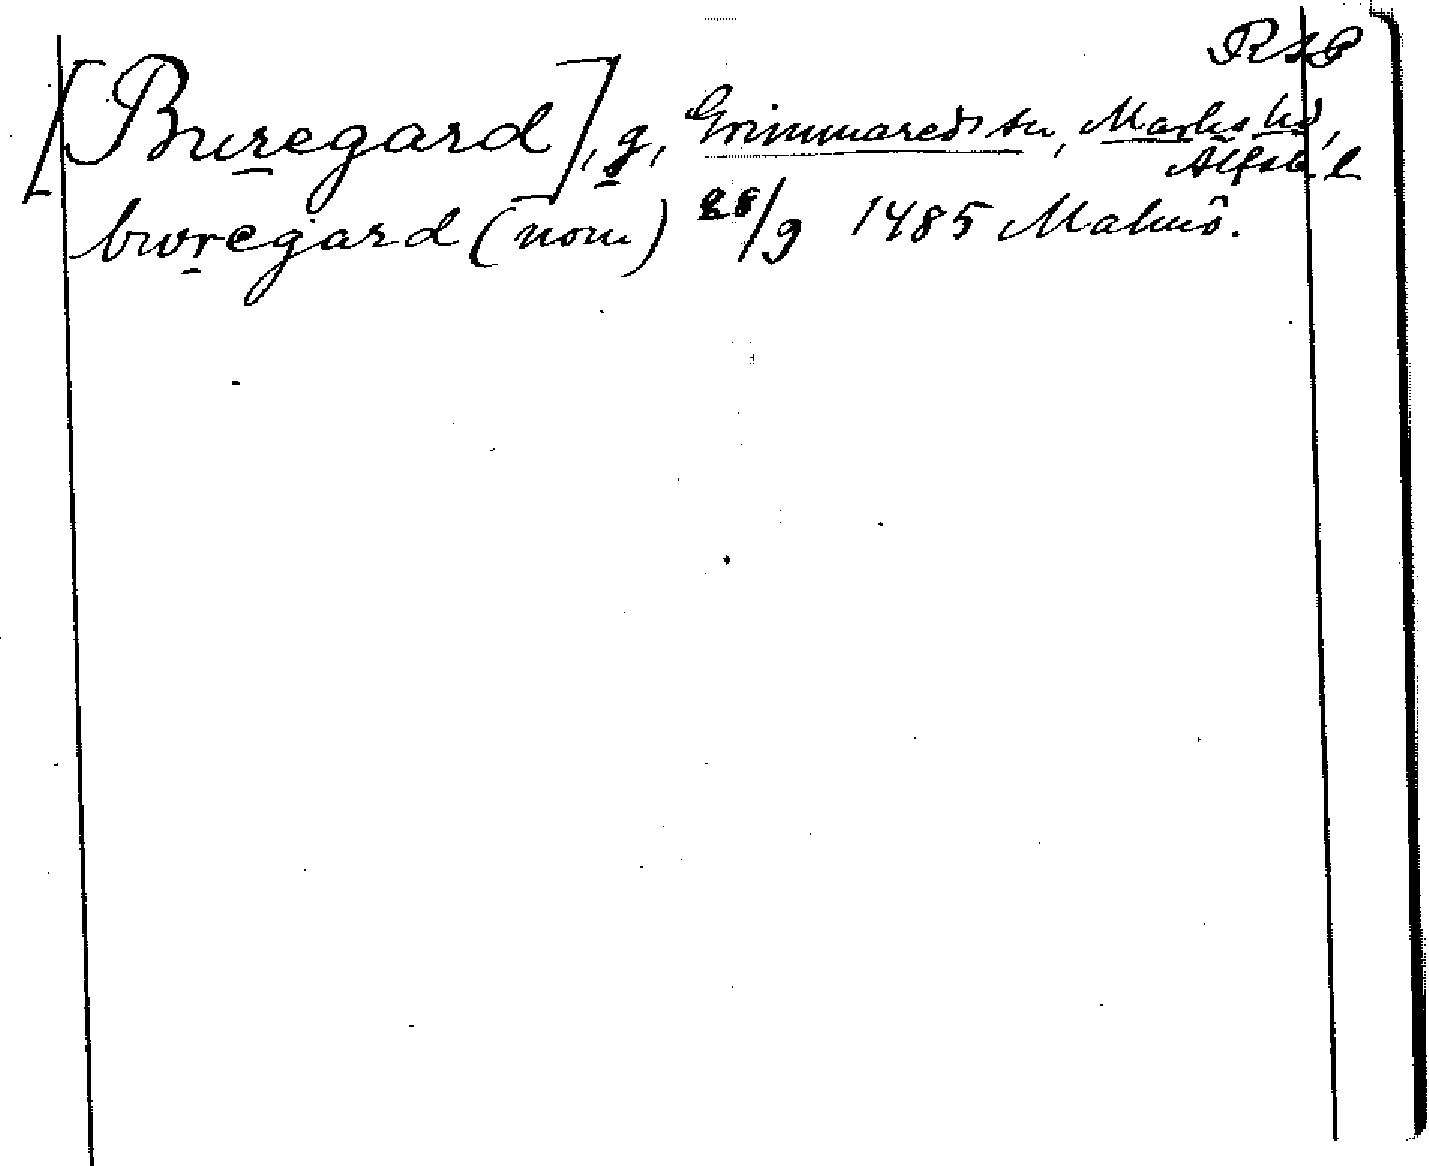 RAP
[Buregard], g, Grimmareds sn, Marks hd,
Älfsb. l
bwregard (nom) 28/9 1485 Malmö.